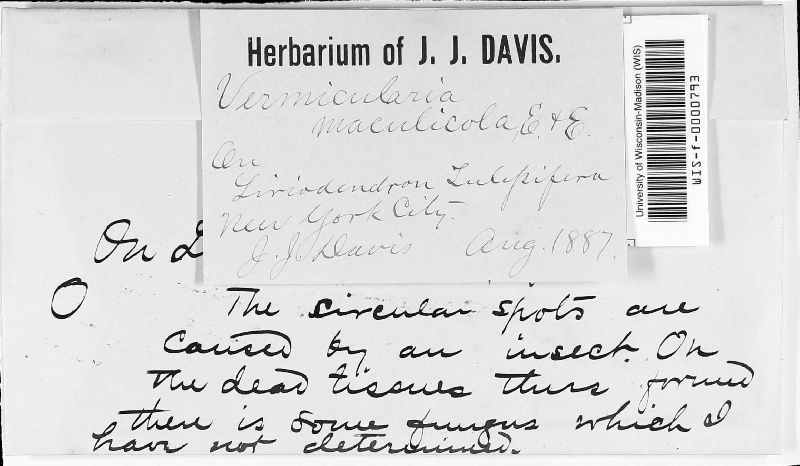 Herbarium of J. J. DAVIS.
Vermicularia
maculicola, E. & E.
On
Liriodendron Tulipifera
New York City.
J. J. Davis Aug. 1887.
University of Wisconsin-Madison (WIS)
WIS-f-0000793
On L
O
The circular spots are
caused by an insect. On
the dead tissues thus formed
there is some fungus which I
have not determined.